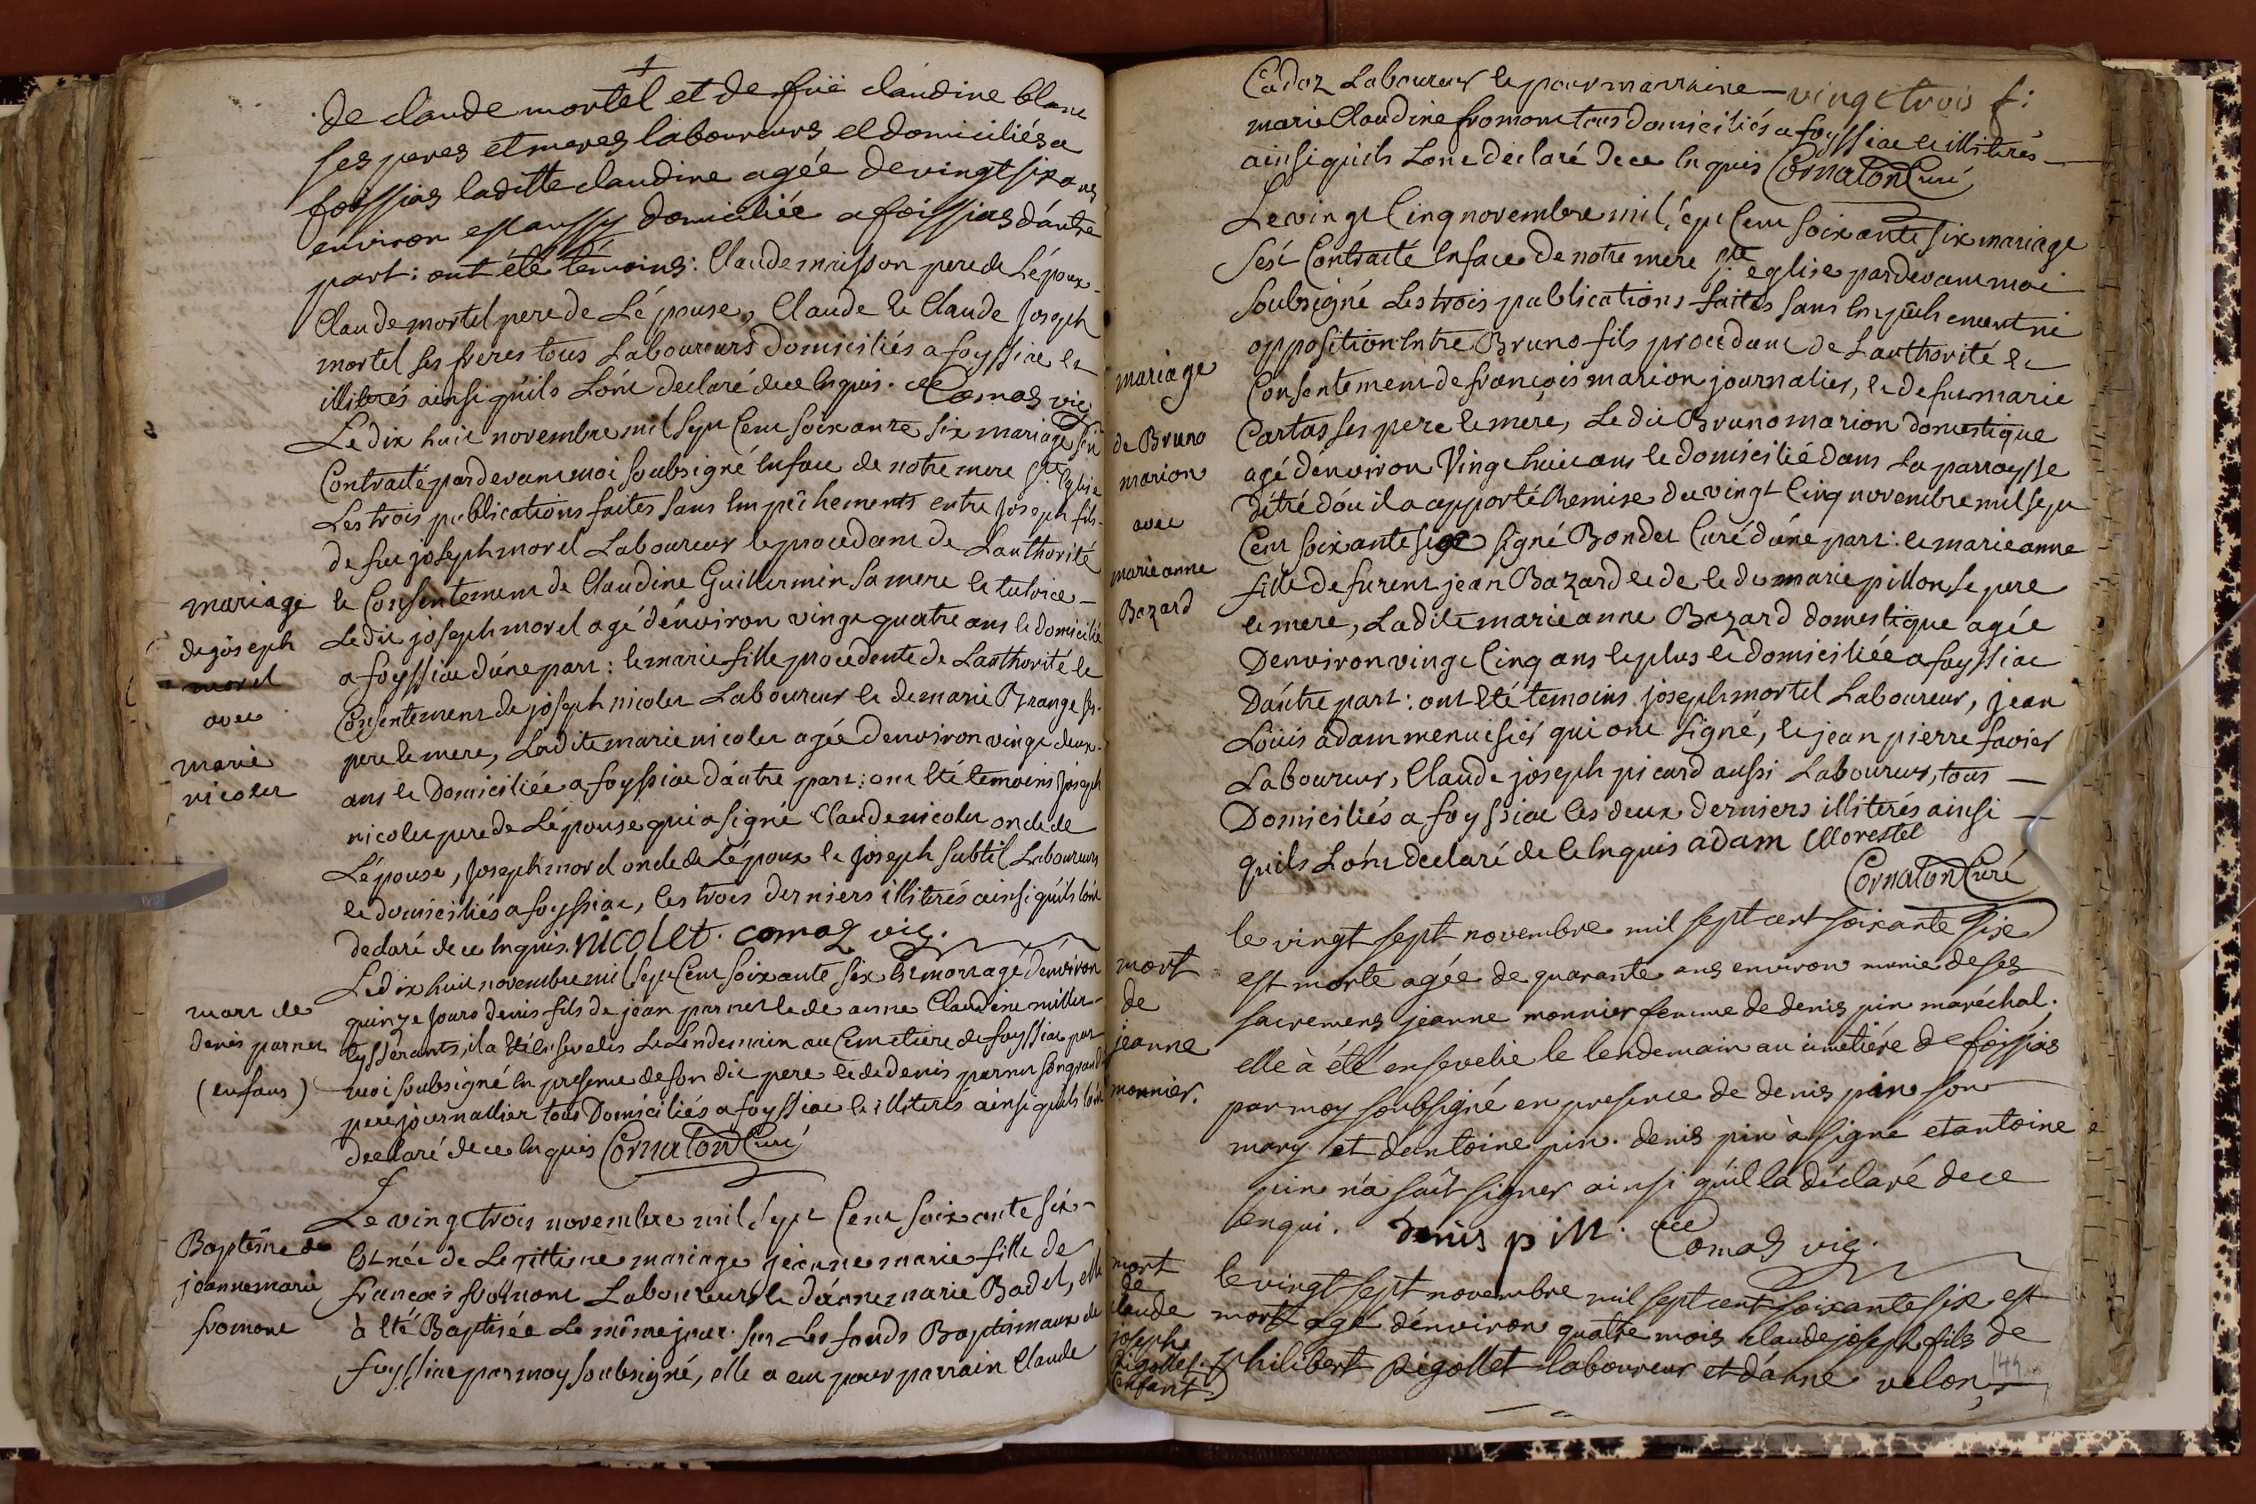 de claude mortel et de fuë claudine blanc
ses peres et meres laboureurs et domiciliés a
foissias laditte claudine agée de vingt six ans
environ est aussy domiciliée a foissias d'autre
part : ont été témoins : Claude maisson pere de L'époux
Claude mortel pere de L'épouse, Claude et Claude Joseph
mortel ses freres tous Laboureurs domiciliés a foyssiac et
illiterés ainsi quils L'ont declaré de ce Enquis. Comas vic.
Le dix huit novembre mil sept Cent soixante six mariage s'est
Contracté pardevant moi soubsigné En face de notre mere Ste Eglise
Les trois publications faites sans Empêchements entre joseph fils
de feu joseph morel Laboureur et procedant de L'authorité
et Consentement de Claudine Guillermin sa mere et tutrice
Le dit joseph morel agé d'environ vingt quatre ans et domicilié
a foyssiac d'une part : et marie fille procedente de L'authorité et
Consentement de joseph nicolet Laboureur et de marie Brange ses
pere et mere, Ladite marie nicolet agée d'environ vingt deux
ans et Domiciliée a foyssiac d'autre part : ont Eté temoins joseph
nicolet pere de L'épouse qui a signé Claude nicolet oncle de
L'épouse, joseph morel oncle de L'époux et joseph subtil Laboureurs
et domiciliés a foyssiac, Les trois derniers illiterés ainsi quils L'ont
declaré de ce Enquis. nicolet. comas vic.
mariage
de joseph
morel
avec
marie
nicolet
Le dix huit novembre mil sept Cent soixante six Est mort agé d'environ
quinze jours denis fils de jean parnet et de anne Claudine millet
tysserants, il a Eté Enseveli Le Lendemain au Cimetiere de foyssiac par
moi soubsigné En presence de son dit pere et de denis parnet son grand
pere journallier tous Domiciliés a foyssiac et illiterés ainsi quils L'ont
declaré de ce Enquis Cornaton Curé
mort de
denis parnet
(enfans)
Le vingt trois novembre mil sept Cent soixante six
Est née de Legittime mariage jeanne marie fille de
françois fromont Laboureur et d'anne marie Badel, elle
à Eté Baptisée Le même jour sur Les fonds Baptismaux de
foyssiac par moy soubsigné, elle a eut pour parrain Claude
Baptême de
jeanne marie
fromont
Cadoz Laboureur et pour marraine vingt trois f:
marie Claudine fromont tous domiciliés a foyssiac et illiterés
ainsi quils L'ont declaré de ce Enquis Cornaton Curé
Le vingt Cinq novembre mil sept Cent soixante six mariage
s'est Contracté En face de notre mere Ste eglise pardevant moi
soubsigné Les trois publications faites sans Empêchement ni
opposition Entre Bruno fils procedant de L'authorité et
Consentement de françois marion journalier, et de fut marie
Cartas ses pere et mere, Le dit Bruno marion domestique
agé d'environ Vingt huit ans et domicilié dans La parroysse
d'étré d'ou il a apporté Remise du vingt Cinq novembre mil sept
Cent soixante six signé Bondet Curé d'une part : et marie anne
fille de furent jean Bazard et de et de marie pillon se pere
et mere, Ladite marie anne Bazard domestique agée
D'environ vingt Cinq ans et plus et domiciliée a foyssiac
D'autre part : ont Eté temoins joseph mortel Laboureur, jean
Loüis adam menuisier qui ont signé, et jean pierre favier
Laboureur, Claude joseph picard aussi Laboureur, tous
Domiciliés a foyssiac Les deux derniers illiterés ainsi
quils L'ont declaré de ce Enquis adam Morestel
Cornaton Curé
mariage
de Bruno
marion
avec
marie anne
Bazard
le vingt sept novembre mil sept cent soixante six
est morte agée de quarante ans environ munie de ses
sacremens jeanne monnier femme de denis pin maréchal.
elle à été ensevelie le lendemain au cimetiére de foissias
par moy soubsigné en presence de denis pin son
mary et d'antoine pin. denis pin à signé et antoine
pin n'a sait signer ainsi qu'il la déclaré de ce
enqui. denis pin. Comas vic.
mort
de
jeanne
monnier.
le vingt sept novembre mil sept cent soixante six est
mort agé d'environ quatre mois claude joseph fils de
philibert pigollet laboureur et d'anne velon,
mort
de
claude
joseph
pigollet.
(enfant)
149